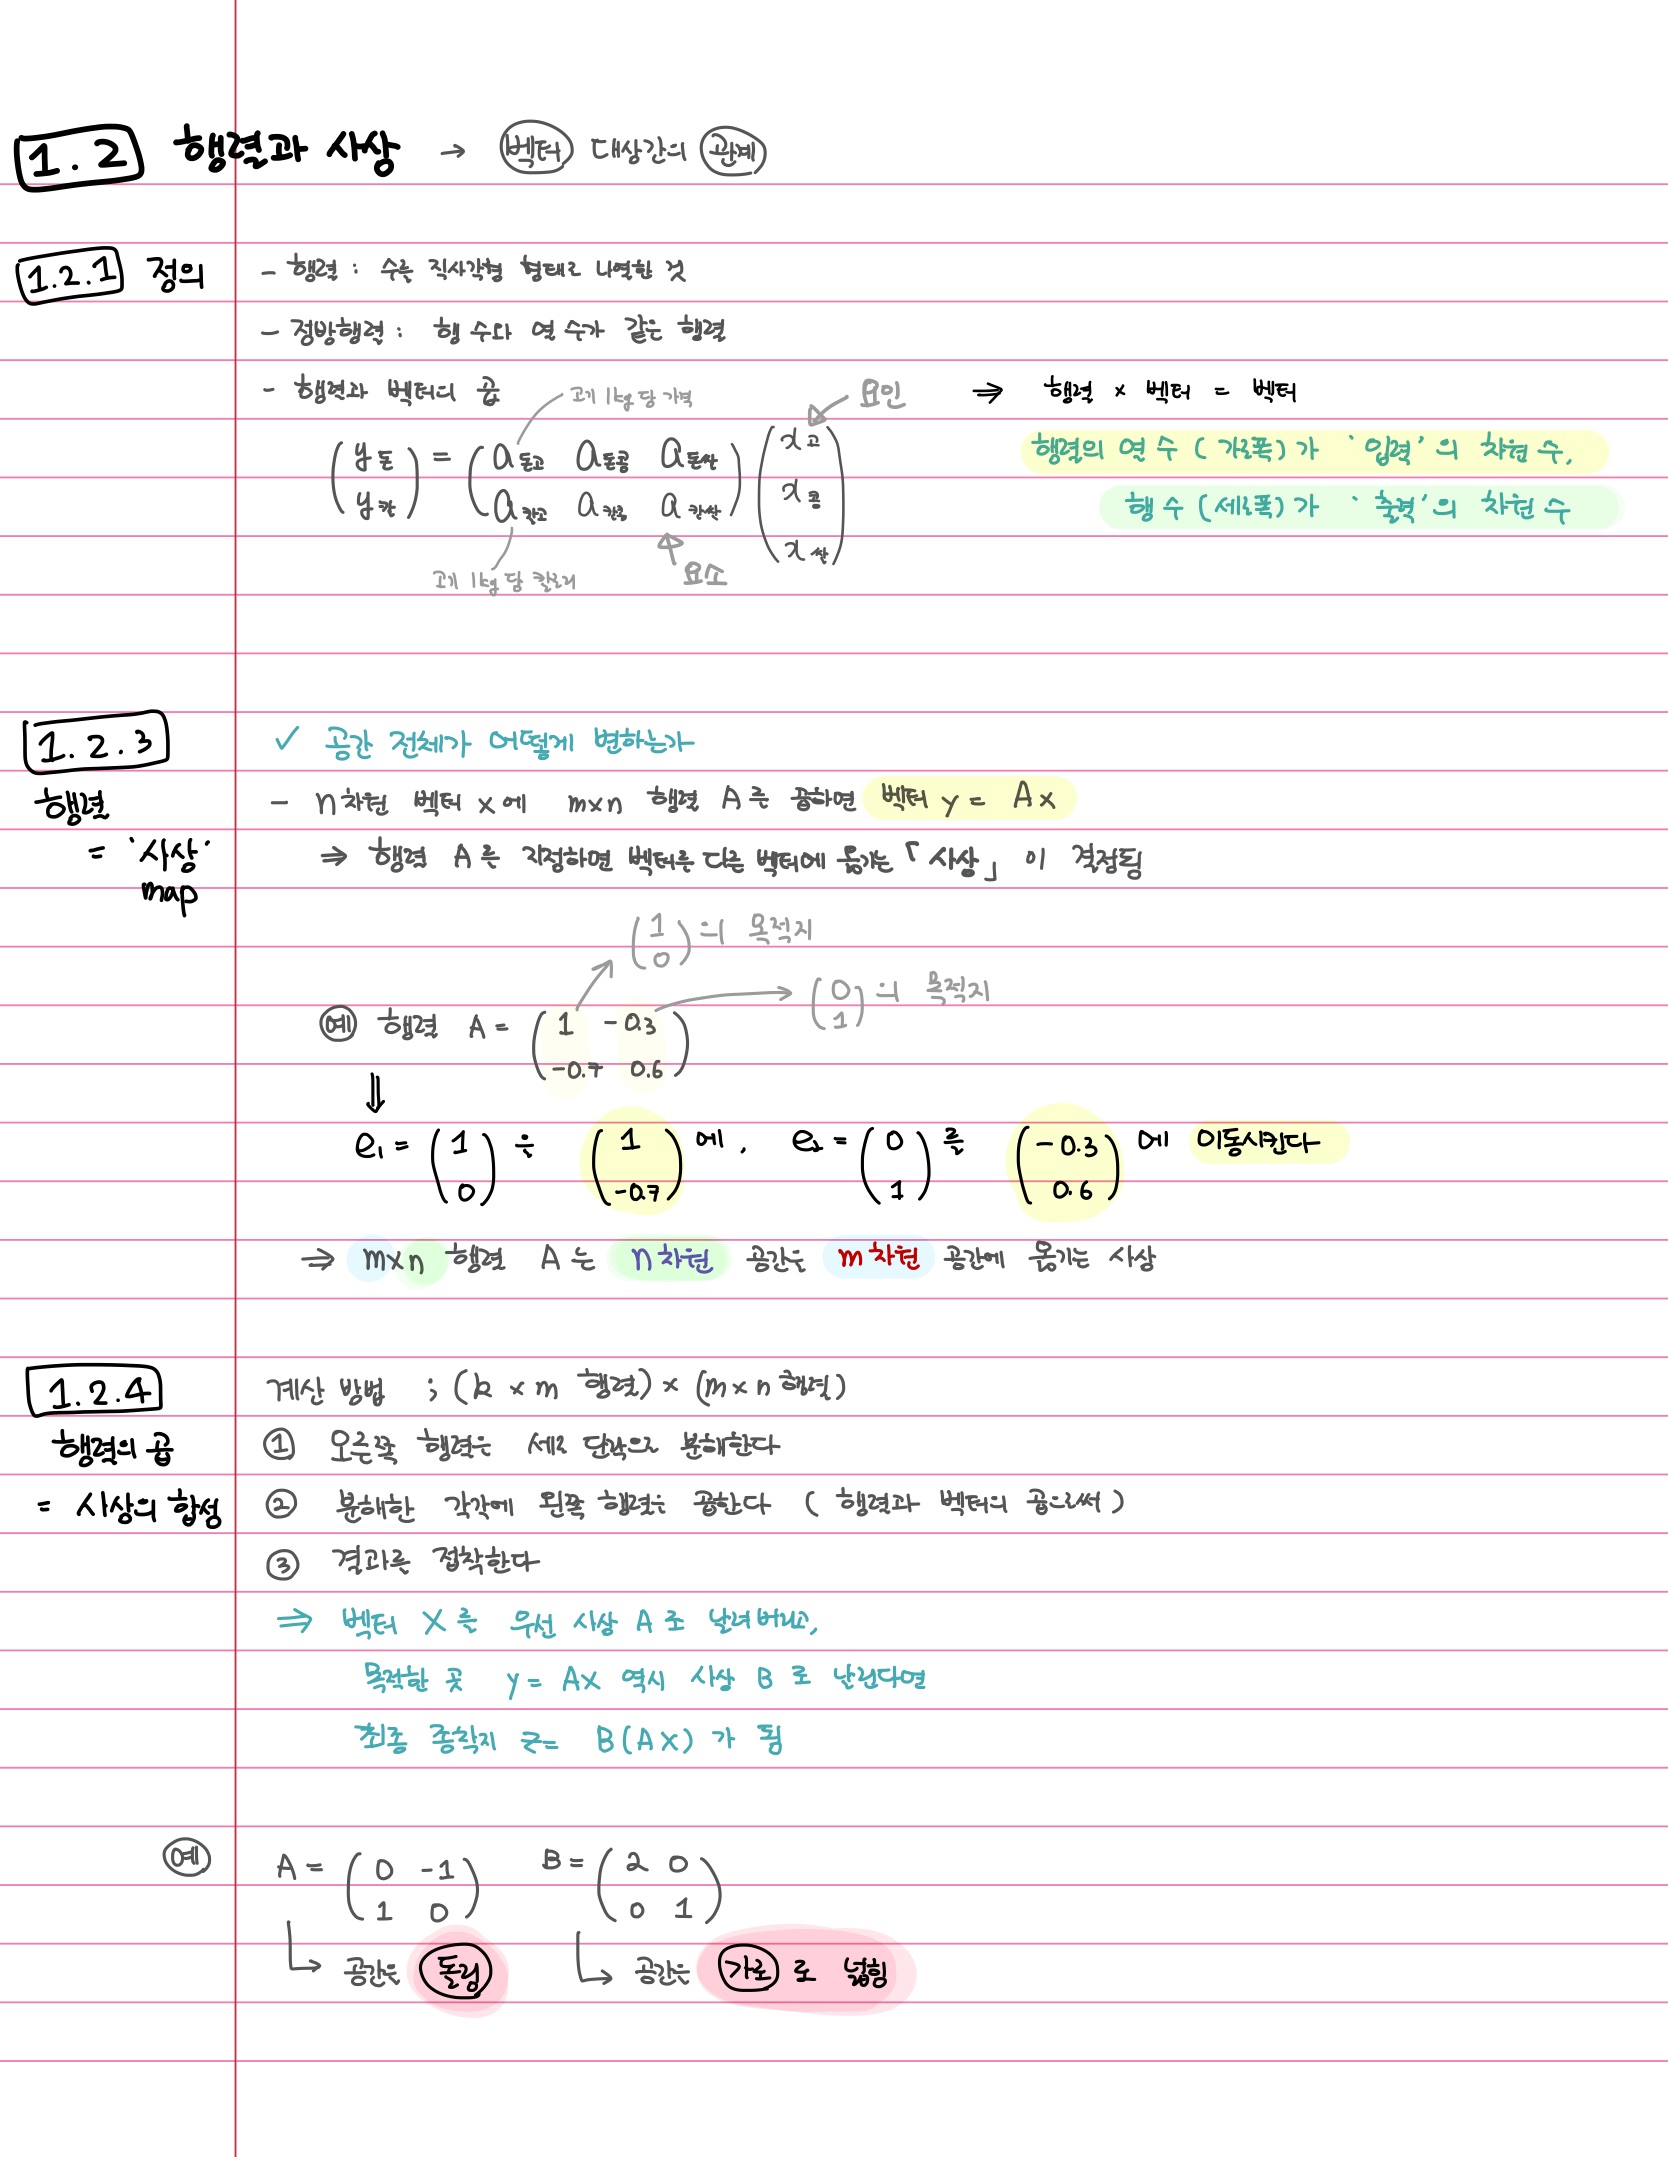 1.2 행렬과 사상 → 벡터 대상간의 관계
1.2.1 정의
- 행렬 : 수를 직사각형 형태로 나열한 것
- 정방행렬 : 행 수와 열 수가 같은 행렬
- 행렬과 벡터의 곱
고기 1kg당 가격
요인
⇒ 행렬 × 벡터 = 벡터
(y돈 y칼) = (a돈고 a돈콩 a돈쌀 a칼고 a칼콩 a칼쌀) (x고 x콩 x쌀)
행렬의 열 수 (가로폭)가 '입력'의 차원 수,
행 수 (세로폭)가 '출력'의 차원 수
고기 1kg당 칼로리
요소
1.2.3
행렬
= '사상'
map
✓ 공간 전체가 어떻게 변하는가
- n차원 벡터 x에 m×n 행렬 A를 곱하면 벡터 y = Ax
⇒ 행렬 A를 지정하면 벡터를 다른 벡터에 옮기는 「사상」이 결정됨
(1 0)의 목적지
(0 1)의 목적지
예 행렬 A = (1 -0.3 -0.7 0.6)
⇓
e₁ = (1 0) 을 (1 -0.7)에, e₂ = (0 1)를 (-0.3 0.6)에 이동시킨다
⇒ m×n 행렬 A는 n차원 공간을 m차원 공간에 옮기는 사상
1.2.4
행렬의 곱
= 사상의 합성
계산 방법 ; (k × m 행렬) × (m × n 행렬)
① 오른쪽 행렬을 세로 단락으로 분해한다
② 분해한 각각에 왼쪽 행렬을 곱한다 (행렬과 벡터의 곱으로써)
③ 결과를 접착한다
⇒ 벡터 X를 우선 사상 A로 날려버리고,
목적한 곳 y = AX 역시 사상 B로 날린다면
최종 종착지 z = B(AX)가 됨
예
A = (0 -1 1 0) B = (2 0 0 1)
↳ 공간을 돌림
↳ 공간을 가로로 넓힘